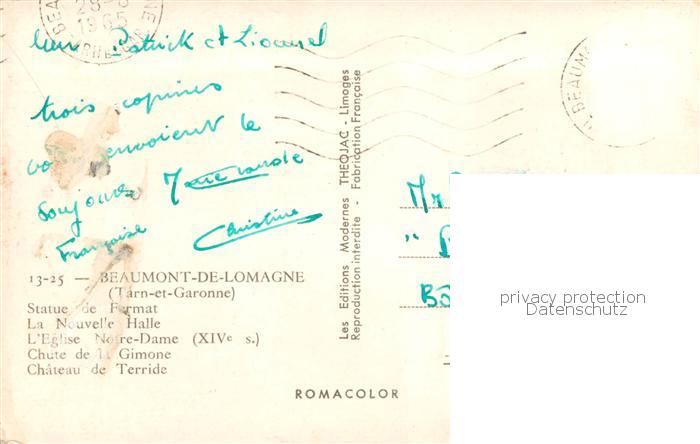 BEAUMONT
28-8
1965
Patrick et Lionnel
trois copines
envoient le
Françoise Christine
13-25 — BEAUMONT-DE-LOMAGNE
(Tarn-et-Garonne)
Statue de Fermat
La Nouvelle Halle
L'Eglise Notre-Dame (XIVe s.)
Chute de la Gimone
Château de Terride
Les Editions Modernes THEOJAC - Limoges
Reproduction interdite - Fabrication Française
ROMACOLOR
BEAUMO
Mr
"
privacy protection
Datenschutz